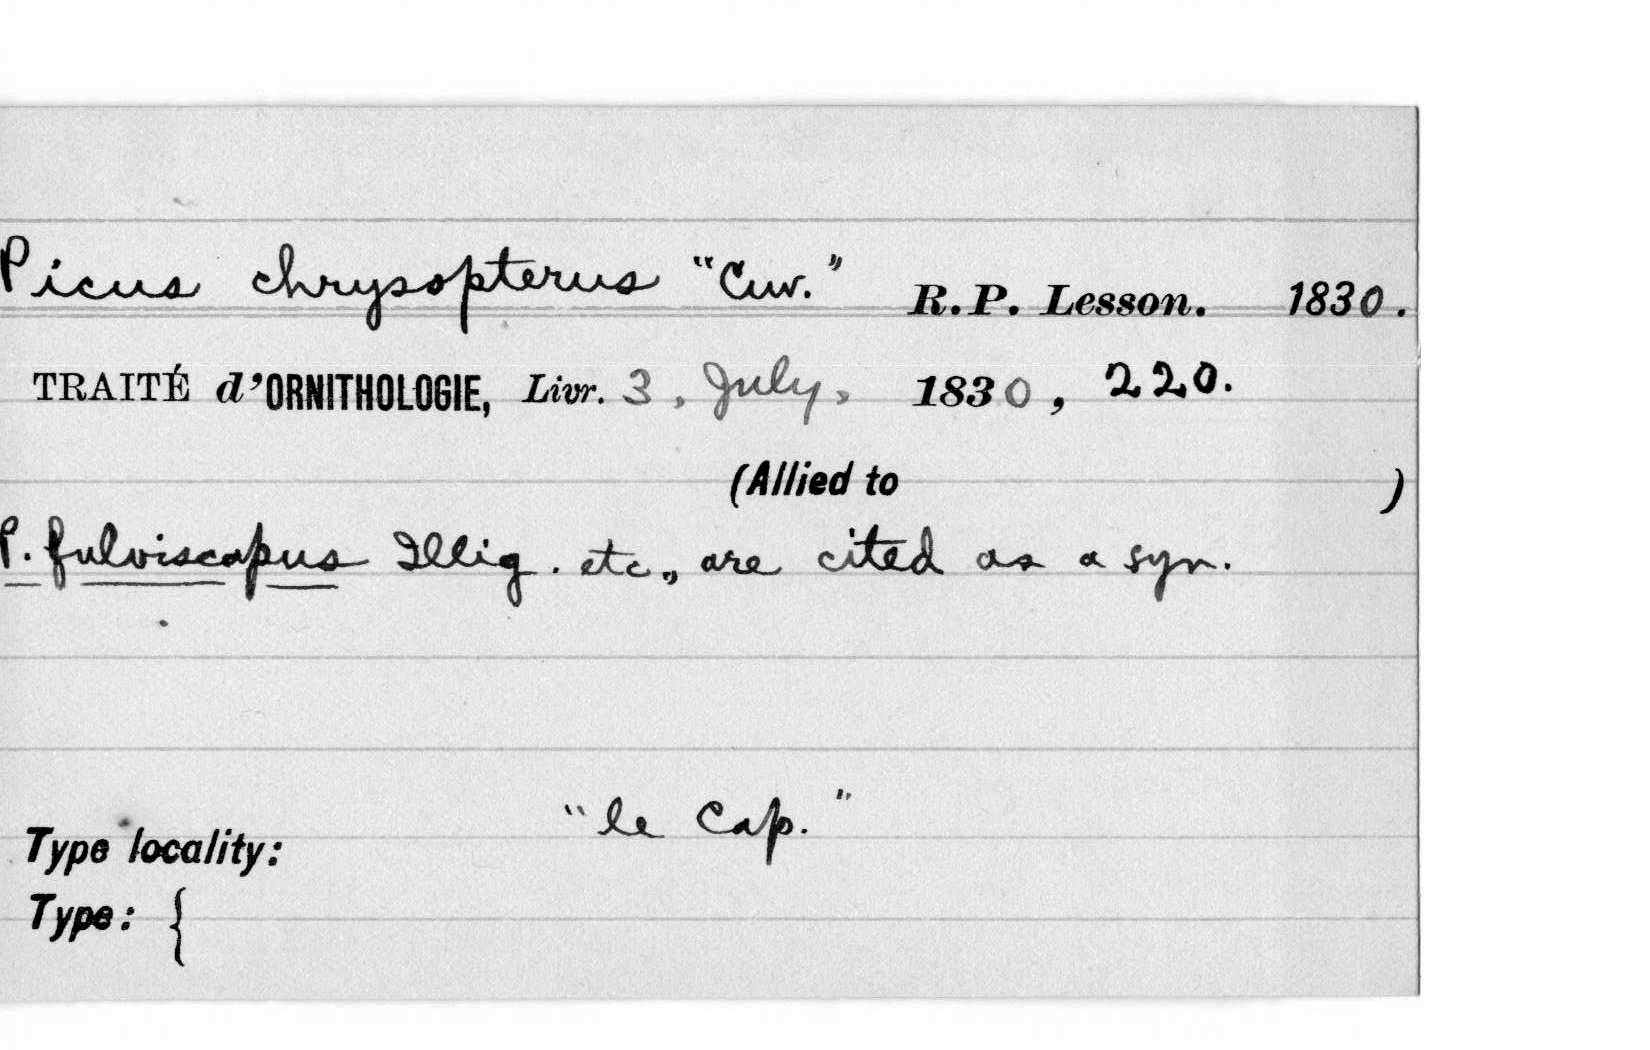 Picus chrysopterus "Cuv." R.P. Lesson. 1830.
TRAITÉ d'ORNITHOLOGIE, Livr. 3, July, 1830, 220.
(Allied to )
P. fulviscapus Illig. etc., are cited as a syn.
Type locality: "le Cap."
Type: {